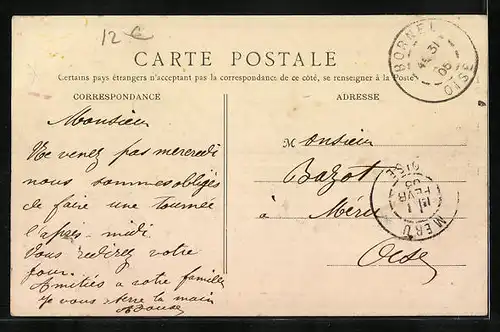 12 €
CARTE POSTALE
Certains pays étrangers n'acceptant pas la correspondance de ce côté, se renseigner à la Poste
CORRESPONDANCE
ADRESSE
Monsieur
Ne venez pas mercredi
nous sommes obligés
de faire une tournée
l'après-midi
Vous redirez votre
jour.
Amitiés a votre famille
Je vous serre la main
Monsieur
Bazot
à Méru
Oise
BORNEL
31
05
OISE
MERU
1
FEVR
05
OISE